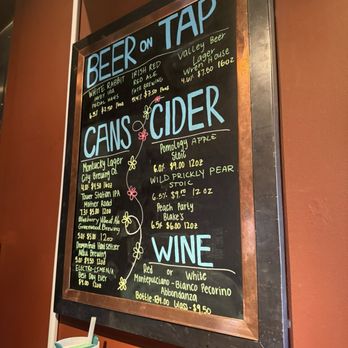 BEER ON TAP
WHITE RABBIT
HAZY IPA
6.5% $7.50 16oz
IRISH RED
RED ALE
$7.50 16oz
Valley Beer
Lager
Wren House
4.0% $7.50 16oz
CANS
Montucky Lager
City Brewing Co.
4.0% $4.50 16oz
Tower Station IPA
Mother Road
7.3% $5.00 12oz
Blueberry Wheat Ale
Greenwood Brewing
5.0% $5.00 12oz
Dragonfruit Hard Seltzer
5.0% $4.50 12oz
Best Day Ever
$4.00 12oz
CIDER
Pomology APPLE
Stoic
6.0% $9.00 12oz
WILD PRICKLY PEAR
STOIC
6.5% 12 oz
Peach Party
Blake's
6.5% $6.00 12oz
WINE
Red or White
Montepulciano - Bianco Pecorino
Abbondanza
Bottle - $29.00 Glass - $9.50